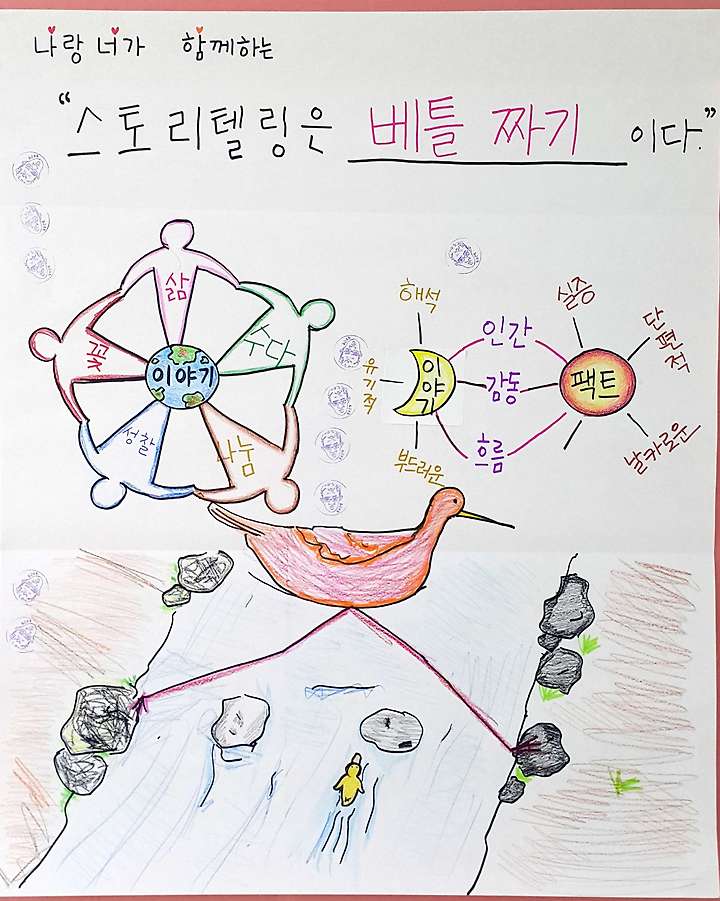 나랑 너가 함께하는
“스토리텔링은 베틀 짜기 이다.”
삶
수다
나눔
성찰
꽃
이야기
해석
유기적
부드러운
이야기
인간
감동
흐름
팩트
실증
단편적
날카로운